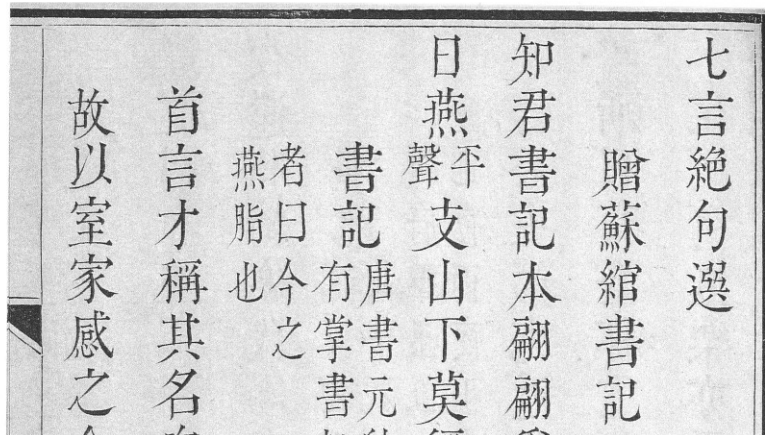 七言絕句選
贈蘇綰書記
知君書記本翩翩
日燕平聲支山下莫
書記唐書元有掌書
者曰今之燕脂也
首言才稱其名
故以室家感之